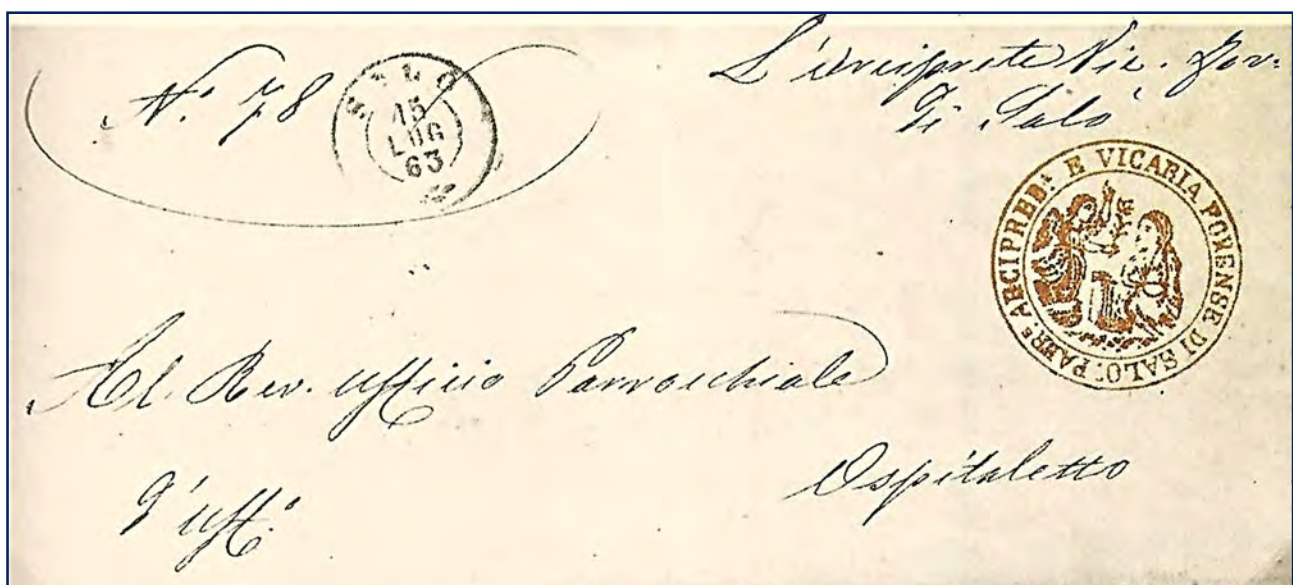 N.° 78
SALÒ
15
LUG
63
L'Arciprete Vic. For.
di Salò
PARR.E ARCIPRED.A E VICARIA FORENSE DI SALÒ
Al Rev. Ufficio Parrocchiale
Ospitaletto
d'uff.°